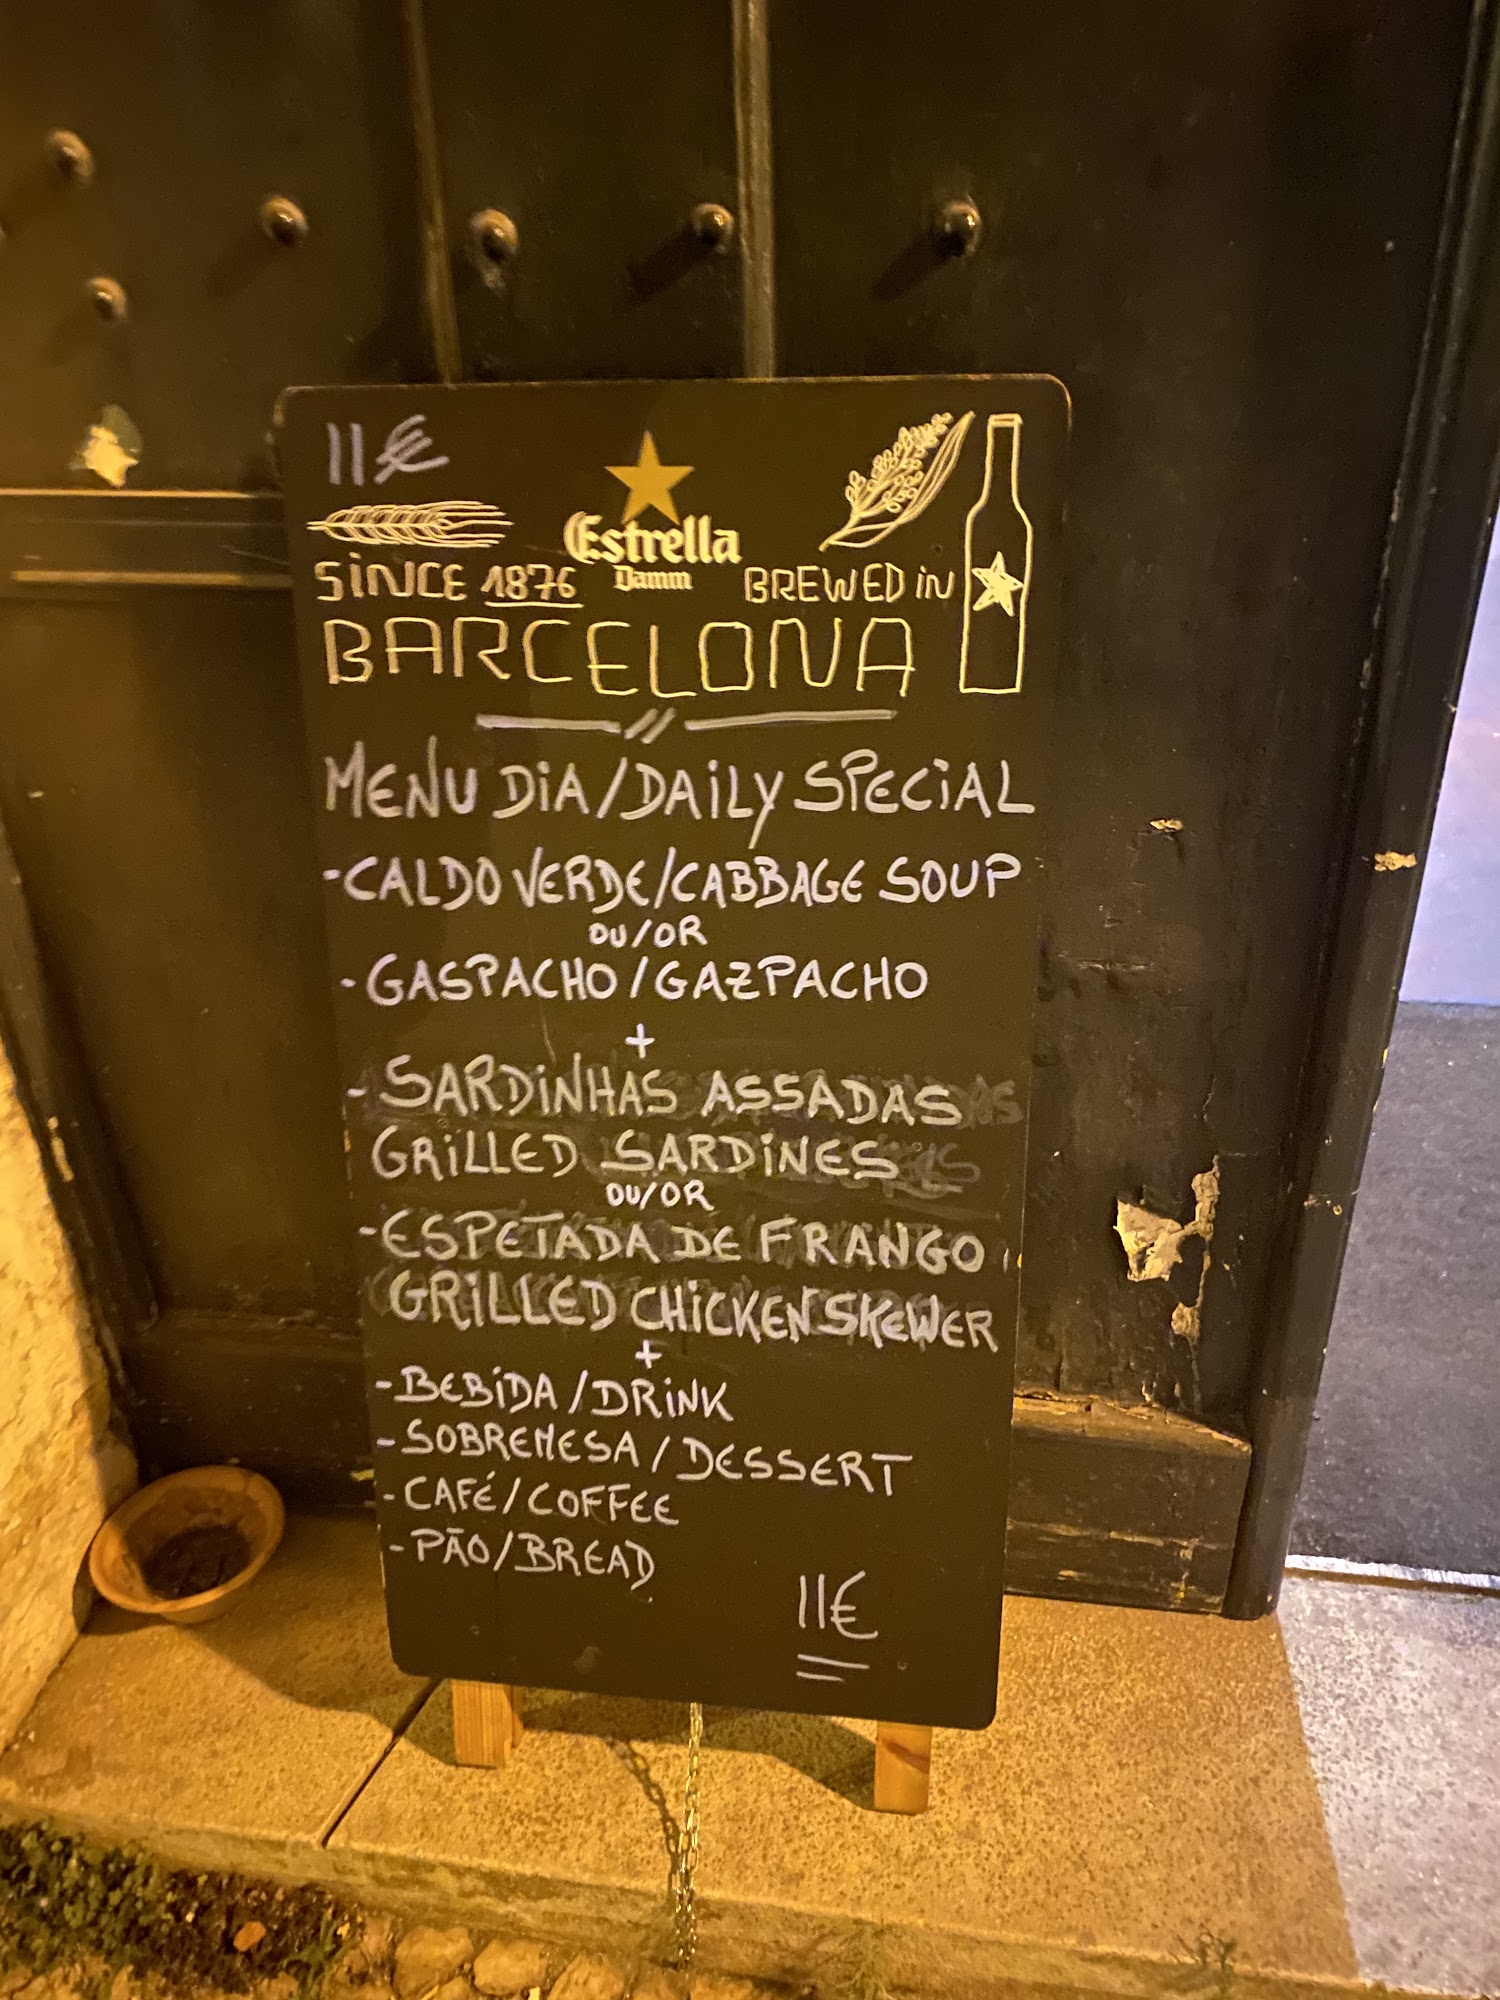 11€
Estrella
Damm
SINCE 1876
BREWED IN
BARCELONA
MENU DIA/DAILY SPECIAL
-CALDO VERDE/CABBAGE SOUP
OU/OR
-GASPACHO/GAZPACHO
+
-SARDINHAS ASSADAS
GRILLED SARDINES
OU/OR
-ESPETADA DE FRANGO
GRILLED CHICKEN SKEWER
+
-BEBIDA/DRINK
-SOBREMESA/DESSERT
-CAFÉ/COFFEE
-PÃO/BREAD
11€